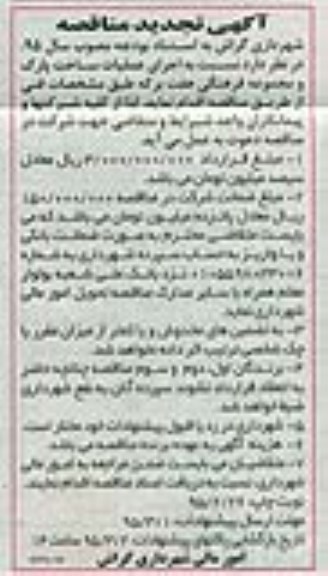 آگهی تجدید مناقصه
شهرداری گراش به استناد بودجه مصوب سال ۹۵
در نظر دارد نسبت به اجرای عملیات ساخت پارک
و مجموعه فرهنگی هفت برکه طبق مشخصات فنی
از طریق مناقصه اقدام نماید. لذا از کلیه شرکتها و
پیمانکاران واجد شرایط و متقاضی جهت شرکت در
مناقصه دعوت به عمل می آید.
۱- مبلغ قرارداد ۳/۰۰۰/۰۰۰/۰۰۰ ریال معادل
سیصد میلیون تومان می باشد.
۲- مبلغ ضمانت شرکت در مناقصه ۱۵۰/۰۰۰/۰۰۰
ریال معادل پانزده میلیون تومان می باشد که می
بایست متقاضی محترم به صورت ضمانت بانکی
و یا واریز به حساب سپرده شهرداری به شماره
نزد بانک ملی شعبه بولوار
معلم همراه با سایر مدارک مناقصه تحویل امور مالی
شهرداری نماید.
۳- به تضمین های مخدوش و یا کمتر از میزان مقرر یا
چک شخصی ترتیب اثر داده نخواهد شد.
۴- برندگان اول، دوم و سوم مناقصه چنانچه حاضر
به انعقاد قرارداد نشوند سپرده آنان به نفع شهرداری
ضبط خواهد شد.
۵- شهرداری در رد یا قبول پیشنهادات خود مختار است.
۶- هزینه آگهی به عهده برنده مناقصه می باشد.
۷- متقاضیان می بایست ضمن مراجعه به امور مالی
شهرداری نسبت به دریافت اسناد مناقصه اقدام نمایند.
نوبت چاپ:
مهلت ارسال پیشنهادات:
تاریخ بازگشایی پاکتهای پیشنهادات: ساعت ۱۴
امور مالی شهرداری گراش